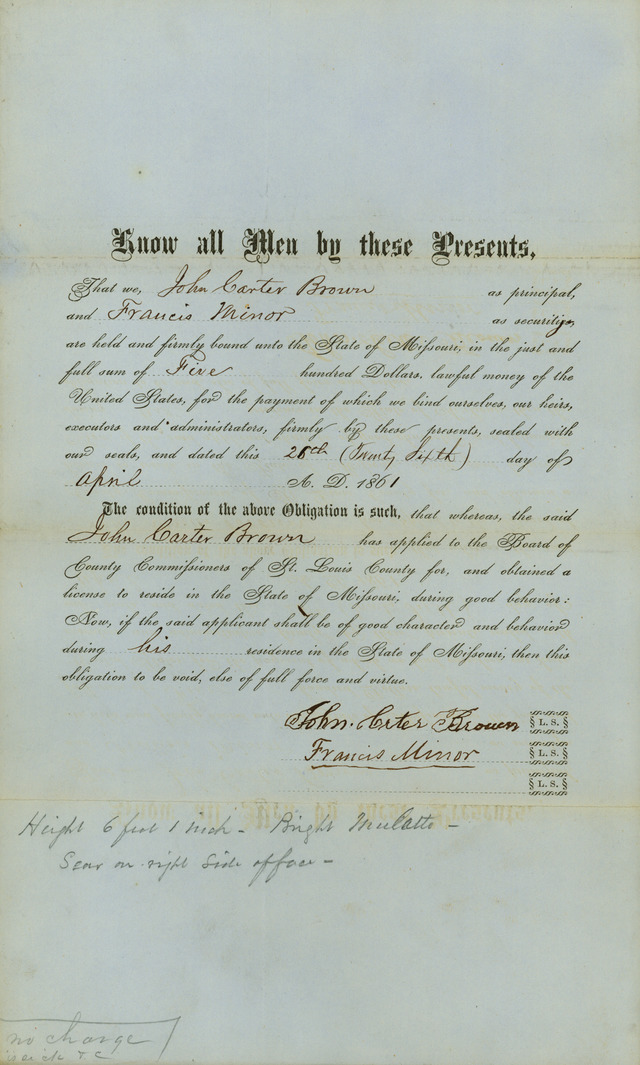 Know all Men by these Presents,
That we, John Carter Brown as principal,
and Francis Minor as security,
are held and firmly bound unto the State of Missouri, in the just and
full sum of Five hundred Dollars, lawful money of the
United States, for the payment of which we bind ourselves, our heirs,
executors and administrators, firmly by these presents, sealed with
our seals, and dated this 26th (Twenty Sixth) day of
April A. D. 1861
The condition of the above Obligation is such, that whereas, the said
John Carter Brown has applied to the Board of
County Commissioners of St. Louis County for, and obtained a
license to reside in the State of Missouri, during good behavior:
Now, if the said applicant shall be of good character and behavior
during his residence in the State of Missouri, then this
obligation to be void, else of full force and virtue.
John. Crter Brown L. S.
Francis Minor L. S.
L. S.
Height 6 feet 1 inch - Bright Mulatto -
Scar on right side of face -
no charge